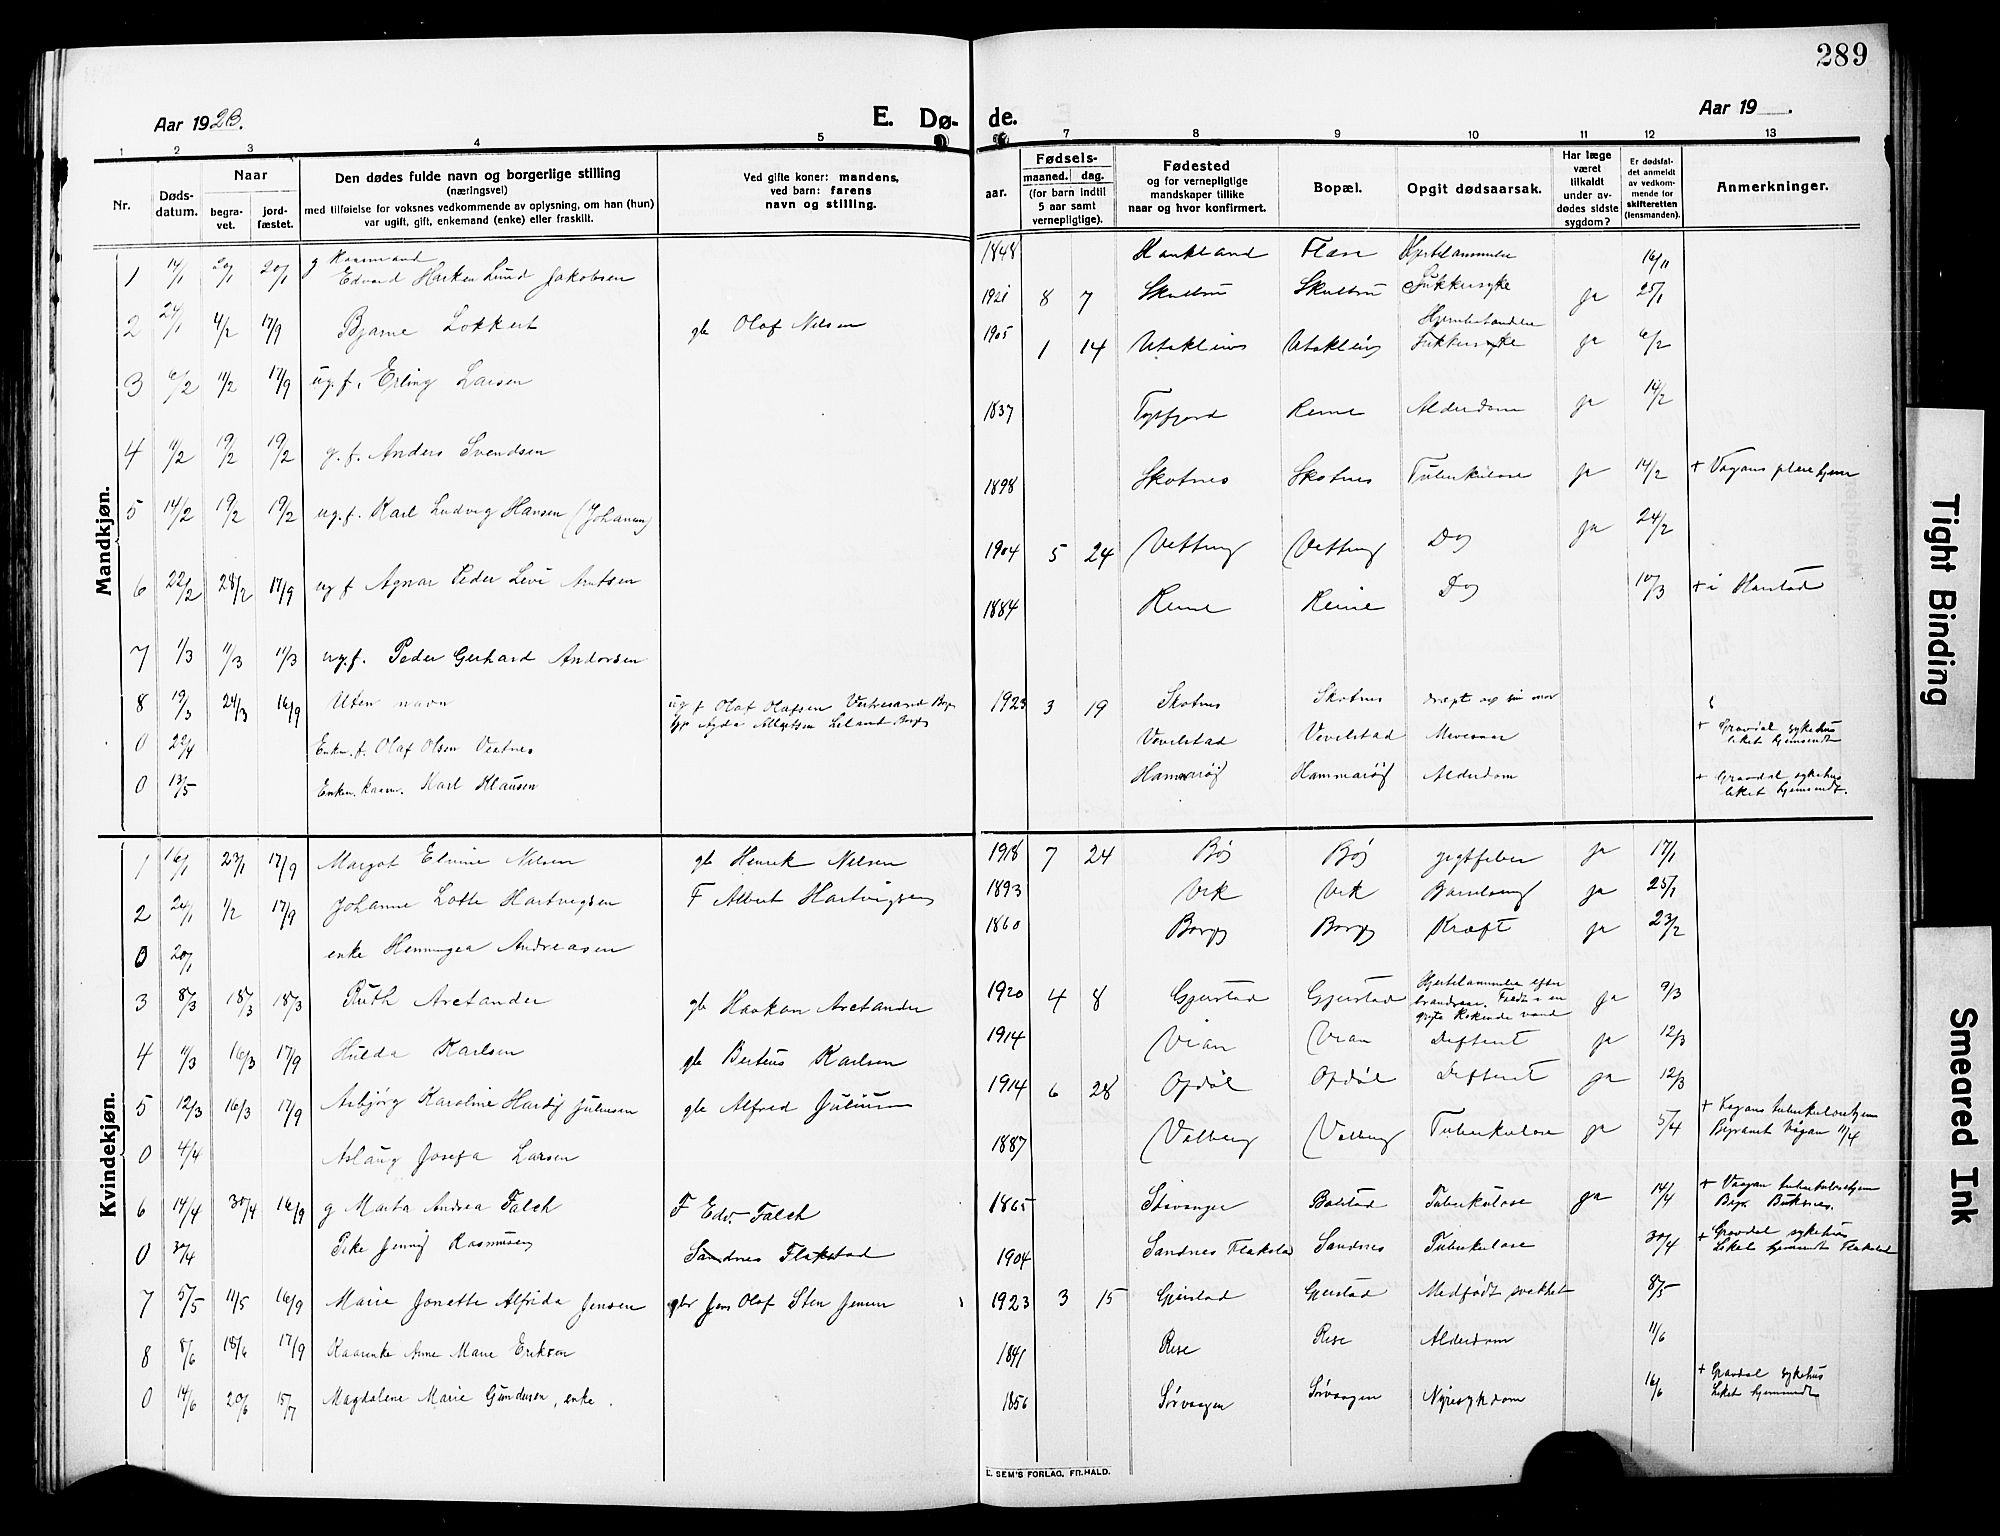 289
Aar 1923.
E. Dø-
de.
Aar 19 .
1 2 3 4 5 7 8 9 10 11 12 13
Nr.
Døds-
datum.
Naar
begra-
vet.
jord-
fæstet.
Den dødes fulde navn og borgerlige stilling
(næringsvei)
med tilføielse for voksnes vedkommende av oplysning, om han (hun)
var ugift, gift, enkemand (enke) eller fraskilt.
Ved gifte koner: mandens,
ved barn: farens
navn og stilling.
aar.
Fødsels-
maaned. dag.
(for barn indtil
5 aar samt
vernepligtige).
Fødested
og for vernepligtige
mandskaper tillike
naar og hvor konfirmert.
Bopæl.
Opgit dødsaarsak.
Har læge
været
tilkaldt
under av-
dødes sidste
sygdom?
Er dødsfal-
det anmeldt
av vedkom-
mende for
skifteretten
(lensmanden).
Anmerkninger.
Mandkjøn.
1 14/1 20/1 20/1 g Kaarmand
Edvard Harken Lund Jakobsen 1848
2 24/1 4/2 17/9 Bjarne Lokkert gb Olaf Nilsen 1921 8 7 Skultbru Skultbru Sukkersyke ja 25/1
3 6/2 11/2 17/9 ug.f. Erling Larsen 1905 1 14 Utakleiv Utakleiv Sukkersyke ja 6/2
4 11/2 19/2 19/2 g.f. Anders Svendsen 1837 Topfjord Reine Alderdom ja 14/2
5 14/2 19/2 19/2 ug.f. Karl Ludvig Hansen (Johansen) 1898 Skotnes Skotnes Tuberkulose ja 14/2 + Vågans pleiehjem
6 22/2 28/2 17/9 ug f Agnar Peder Levi Arntsen 1904 5 24 Vetting Vetting Do ja 24/2
7 1/3 11/3 11/3 ug.f. Peder Gerhard Andorsen 1884 Reine Reine Do 10/3 + i Harstad
8 19/3 24/3 16/9 Uten navn ug f Olaf Olafsen Vestresand
Agda Albertsen Leland 1923 3 19 Skotnes Skotnes dræpt av sin mor
0 29/4 Enkm. f. Olaf Olsen Vestnes Vevelstad Vevelstad Mavesaar + Gravdal sykehus
liket hjemsendt
0 13/5 Enkm. kaarm. Karl Klausen Hammarøy Hammarøy Alderdom + Gravdal sykehus
liket hjemsendt.
Kvindekjøn.
1 16/1 23/1 17/9 Margot Elvine Nilsen gb Henrik Nilsen 1918 7 24 Bø Bø gigtfeber ja 17/1
2 24/1 1/2 17/9 Johanne Lotte Hartvigsen F Albert Hartvigsen 1893 Vik Vik Barselseng ja 25/1
0 20/1 enke Henningea Andreasen 1860 Borg Borg Kræft ja 23/2
3 8/3 18/3 18/3 Ruth Arctander gb Haakon Arctander 1920 4 8 Gjerstad Gjerstad Hjertelammelse efter
brandsaar. Faldt i en
gryte kokende vand ja 9/3
4 11/3 16/3 17/9 Hulda Karlsen gb Berteus Karlsen 1914 Vian Vian Difterit ja 12/3
5 12/3 16/3 17/9 Asbjørg Karoline Hardy Juliusen gb Alfred Juliusen 1914 6 28 Opdøl Opdøl Difterit ja 12/3
0 4/4 Aslaug Josefa Larsen 1887 Valberg Valberg Tuberkulose ja 5/4 + Vågans tuberkulosehjem
Begravet Vågan 11/4
6 14/4 30/4 16/9 g Marta Andrea Falch F Edv. Falch 1865 Stavanger Bolstad Tuberkulose ja 14/4 + Vaagan tuberkulosehjem
Begr. Buksnes.
0 30/4 Pike Jenny Rasmussen Sandnes Flakstad 1904 Sandnes Flakstad Sandnes Tuberkulose 30/4 + Gravdal sykehus
Liket hjemsendt Flakstad
7 5/5 11/5 16/9 Marie Jonette Alfrida Jensen gbr Jens Olaf Sten Jensen 1923 3 15 Gjerstad Gjerstad Medfødt svakhet 8/5
8 8/6 18/6 17/9 Kaarenke Anne Marie Eriksen 1841 Rise Rise Alderdom 11/6
0 14/6 20/6 15/7 Magdalene Marie Gundersen, enke. 1856 Sørvaagen Sørvaagen Nyresykdom 16/6 + Gravdal sykehus
Liket hjemsendt
E. SEM'S FORLAG, FR.HALD.
Tight Binding
Smeared Ink